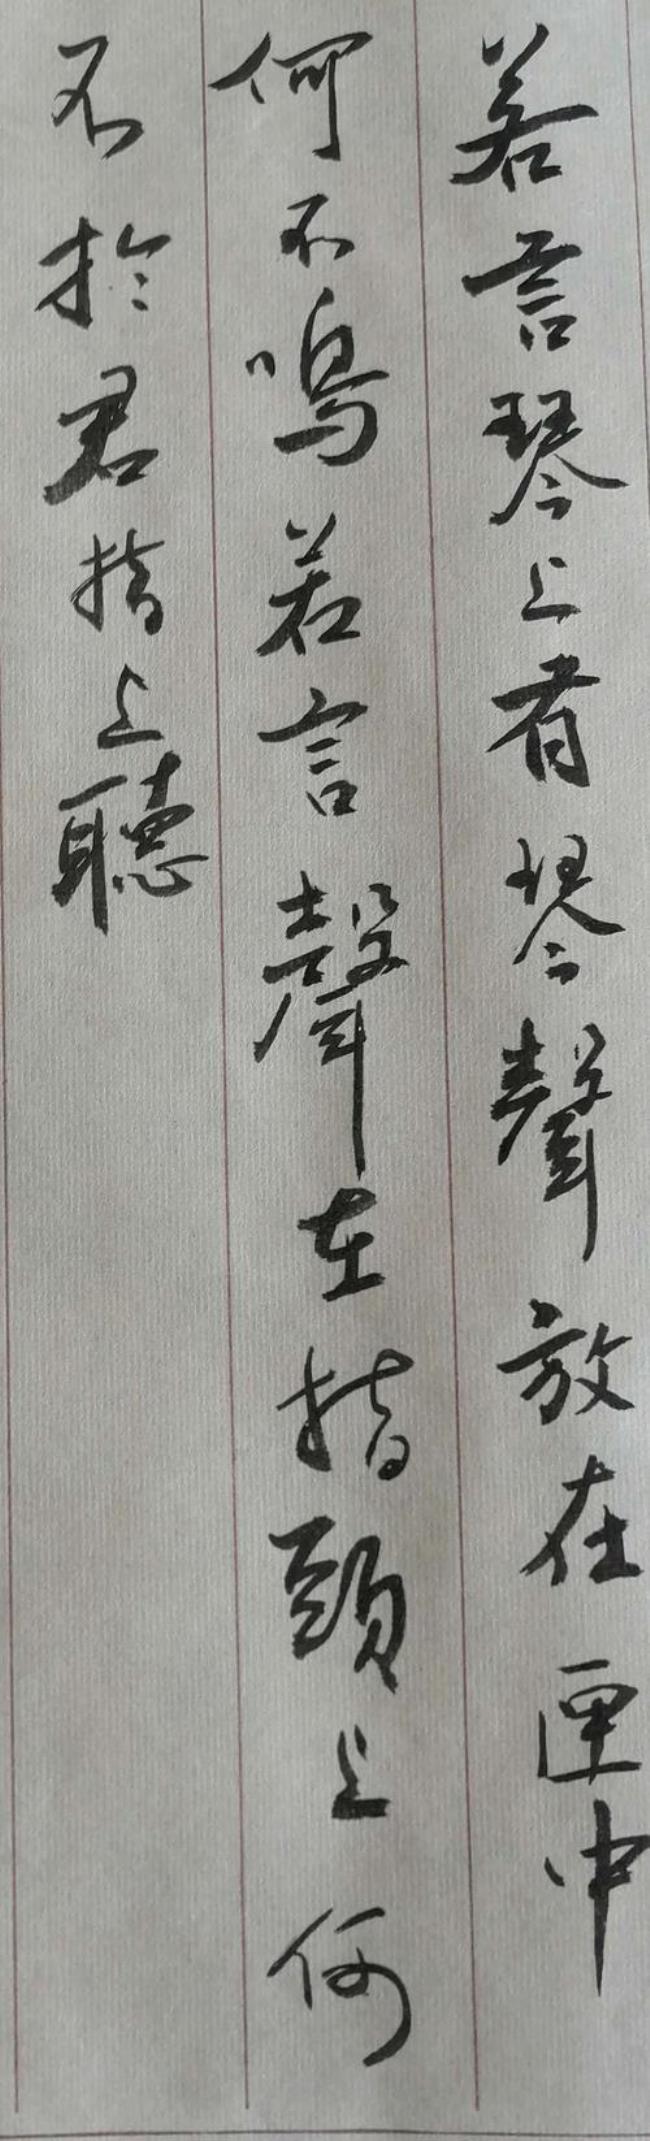 若言琴上有琴聲放在匣中
何不鳴若言聲在指頭上何
不於君指上聽